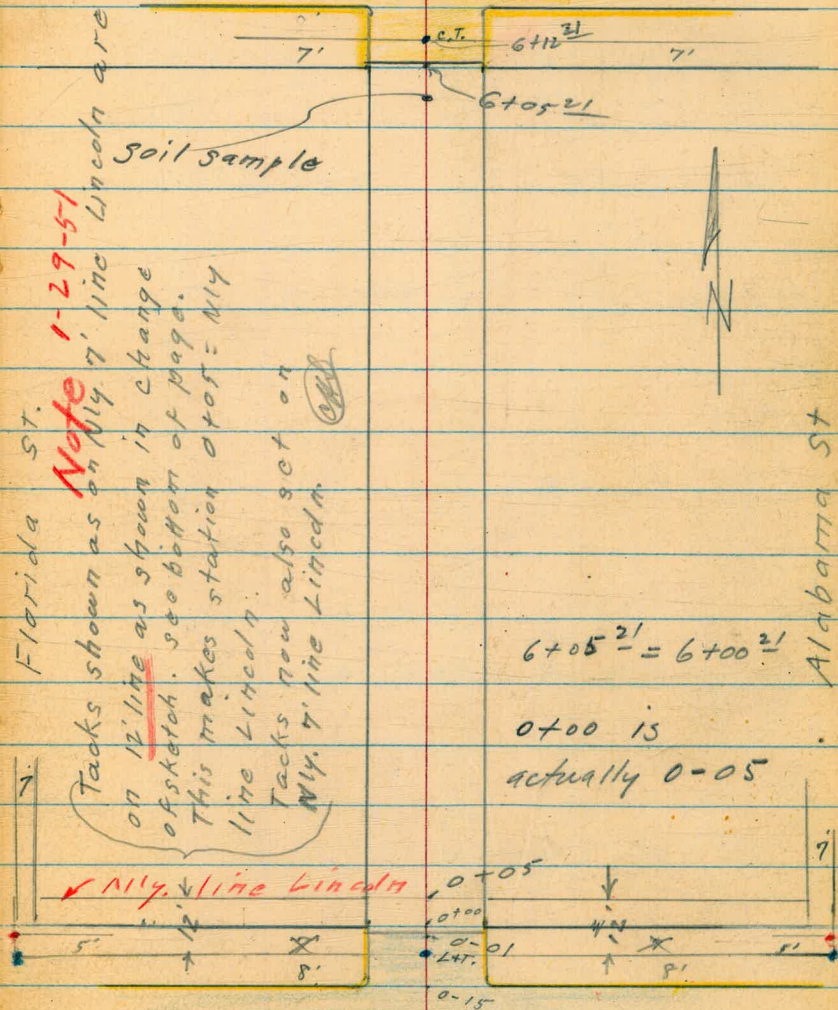 C.T.
6+12 21
7'
7'
6+05 21
soil sample
Note 1-29-51
Tacks shown as on Nly 7' line Lincoln are
on 12' line as shown in change
of sketch. see bottom of page.
This makes station 0+05 = Nly
line Lincoln.
Tacks now also set on
Nly. 7' line Lincoln.
Florida St.
Alabama St
N
6+05 21 = 6+00 21
0+00 is
actually 0-05
7'
7'
Nly. line Lincoln
0+05
0+00
0-01
L&T.
0-15
12'
12'
5'
8'
8'
5'